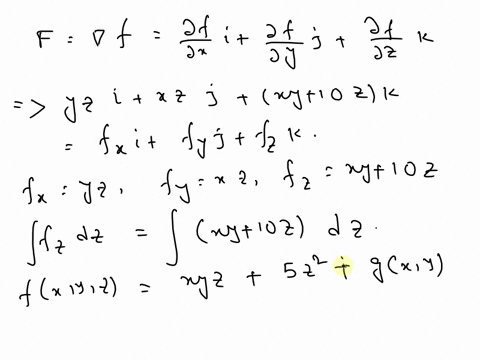 F = ∇ f = ∂f/∂x i + ∂f/∂y j + ∂f/∂z k
=> yz i + xz j + (xy+10z) k
= fx i + fy j + fz k.
fx = yz, fy = xz, fz = xy+10z
∫fz dz = ∫(xy+10z) dz.
f(x,y,z) = xyz + 5z² + g(x,y)